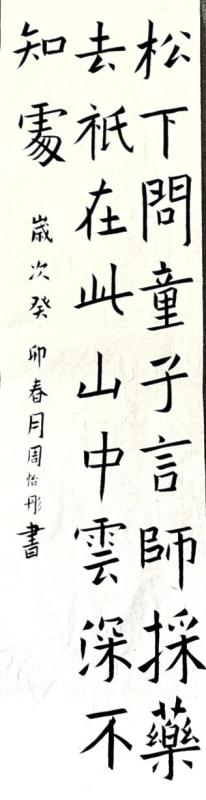 松下問童子言師採藥
去祇在此山中雲深不
知處
歲次癸卯春月周怡彤書